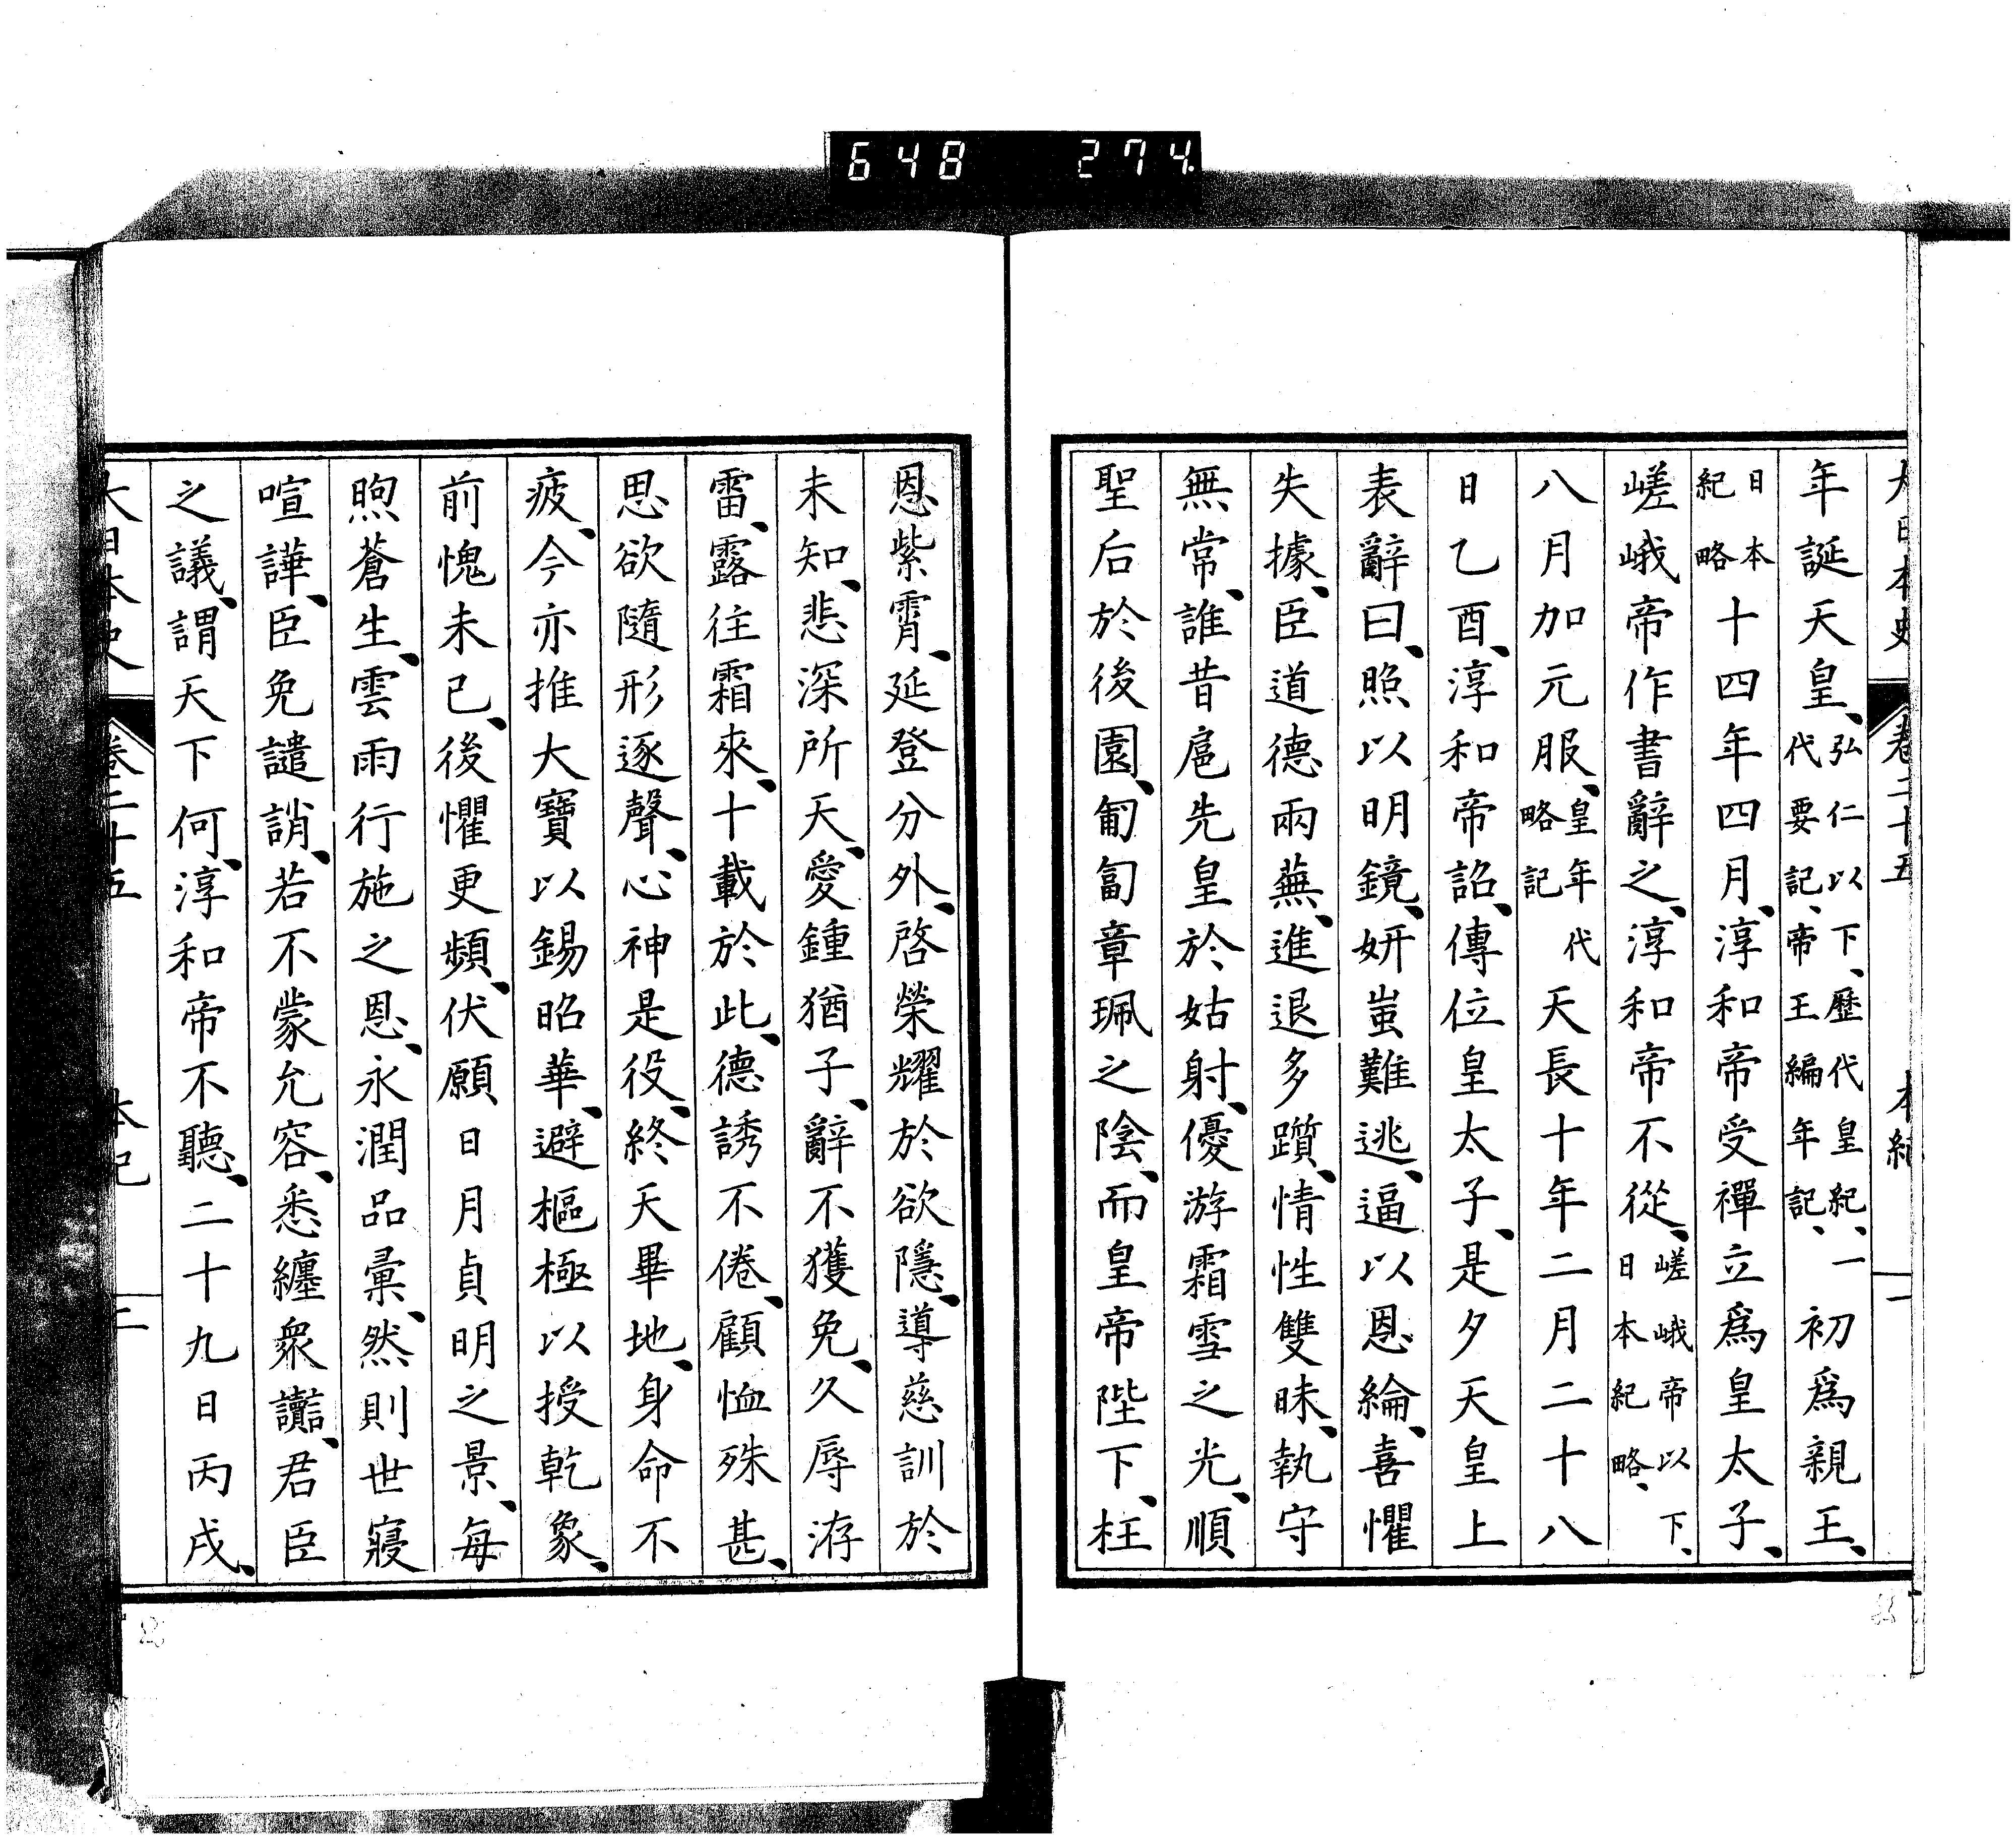 648 274
大日本史 卷二十五 本紀 一
年誕天皇、弘仁以下、歷代皇紀、一代要記、帝王編年記、初爲親王、
日本紀略十四年四月、淳和帝受禪立爲皇太子、
嵯峨帝作書辭之、淳和帝不從、嵯峨帝以下、日本紀略、
八月加元服、皇年代略記天長十年二月二十八
日乙酉、淳和帝詔、傳位皇太子、是夕天皇上
表辭曰、照以明鏡、妍蚩難逃、逼以恩綸、喜懼
失據、臣道德兩蕪、進退多躓、情性雙昧、執守
無常、誰昔扈先皇於姑射、優游霜雪之光、順
聖后於後園、匍匐章珮之陰、而皇帝陛下、枉
恩紫霄、延登分外、啓榮耀於欲隱、導慈訓於
未知、悲深所天、愛鍾猶子、辭不獲免、久辱洊
雷、露往霜來、十載於此、德誘不倦、顧恤殊甚、
思欲隨形逐聲、心神是役、終天畢地、身命不
疲、今亦推大寶以錫昭華、避樞極以授乾象、
前愧未已、後懼更頻、伏願日月貞明之景、每
煦蒼生、雲雨行施之恩、永潤品彙、然則世寢
喧譁、臣免譴誚、若不蒙允容、悉纏衆讟、君臣
之議、謂天下何、淳和帝不聽、二十九日丙戌、
大日本史 卷二十五 本紀 二